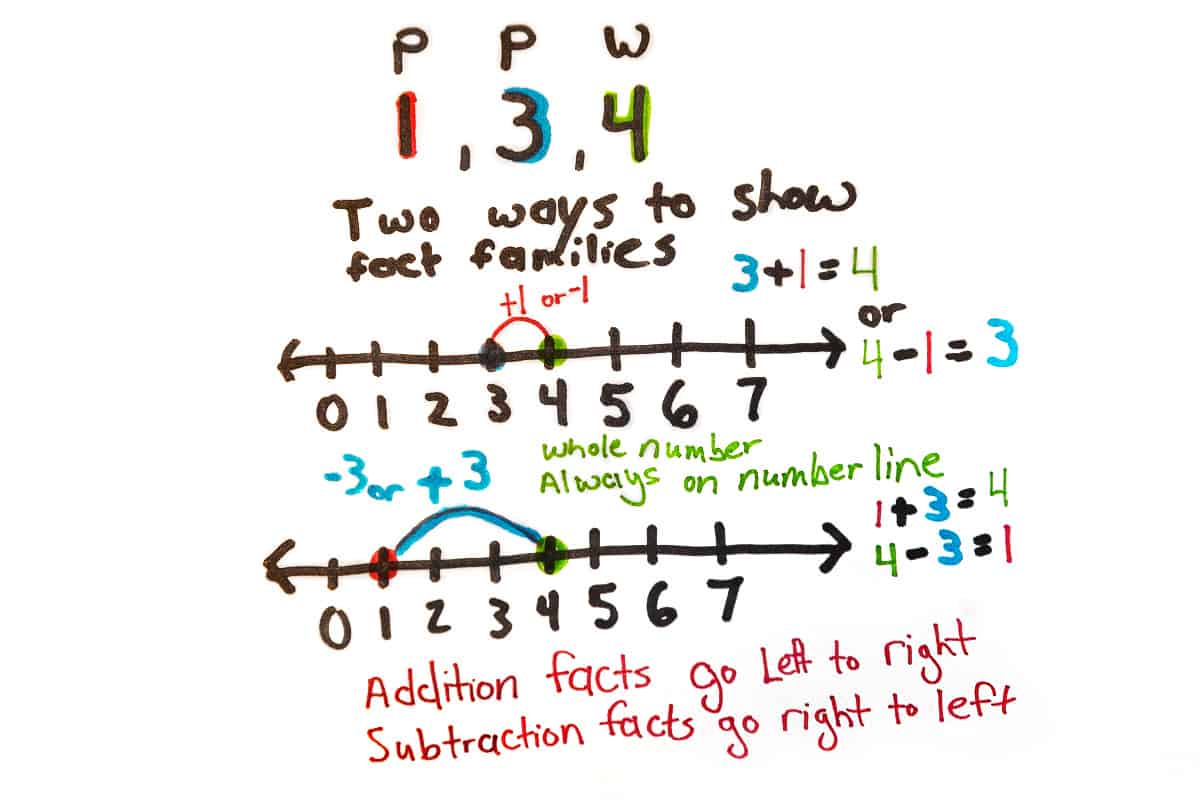 P P W
1, 3, 4
Two ways to show
fact families
3+1=4
or
4-1=3
+1 or -1
0 1 2 3 4 5 6 7
whole number
Always on number line
-3 or +3
1+3=4
4-3=1
0 1 2 3 4 5 6 7
Addition facts go Left to right
Subtraction facts go right to left